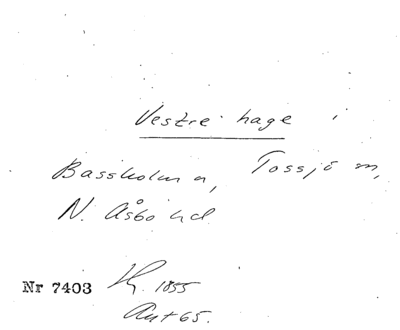 Vestre hage i
Bassholma, Tossjö m,
N. Åsbo hd
Nr 7403 Hy. 1855
Ant 65.